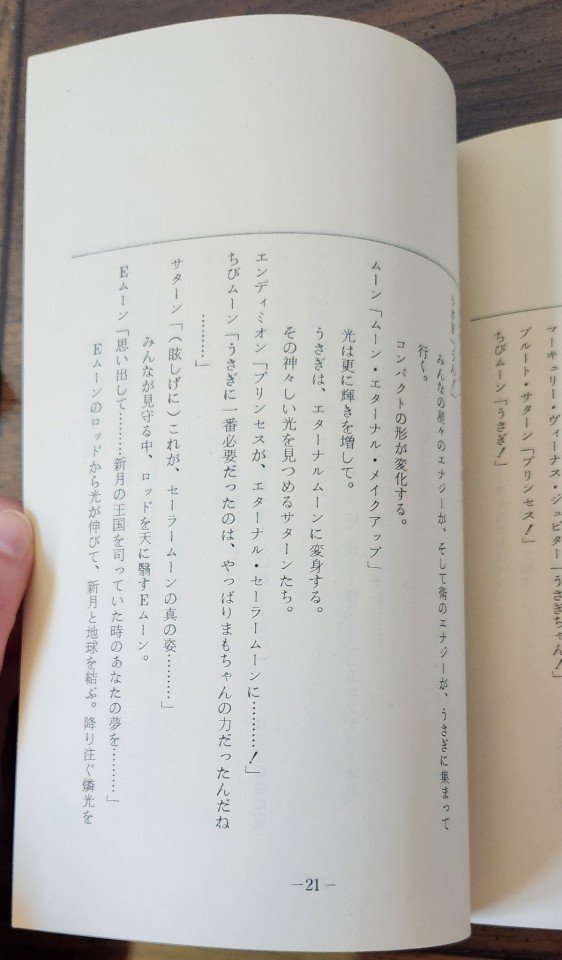 マーキュリー・ヴィーナス・ジュピター「うさぎちゃん！」
プルート・サターン「プリンセス！」
ちびムーン「うさぎ！」
みんなの星々のエナジーが、そして衛のエナジーが、うさぎに集まって
行く。
コンパクトの形が変化する。
ムーン「ムーン・エターナル・メイクアップ」
光は更に輝きを増して。
うさぎは、エターナルムーンに変身する。
その神々しい光を見つめるサターンたち。
エンディミオン「プリンセスが、エターナル・セーラームーンに………！」
ちびムーン「うさぎに一番必要だったのは、やっぱりまもちゃんの力だったんだね
…………」
サターン「（眩しげに）これが、セーラームーンの真の姿………」
みんなが見守る中、ロッドを天に翳すEムーン。
Eムーン「思い出して………新月の王国を司っていた時のあなたの夢を………」
Eムーンのロッドから光が伸びて、新月と地球を結ぶ。降り注ぐ燐光を
—21—